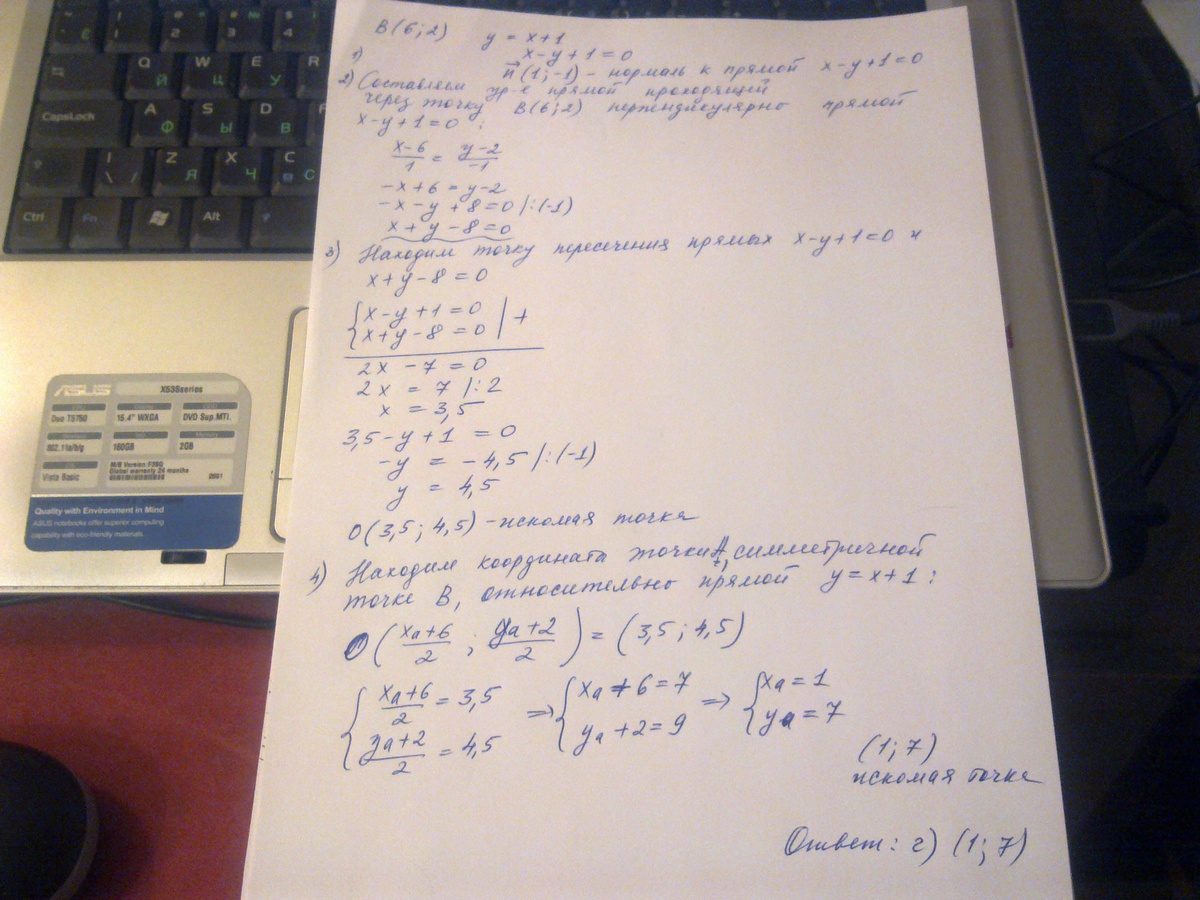 B(6;2) y = x+1
1) x-y+1=0
n⃗(1;-1) - нормаль к прямой x-y+1=0
2) Составляем ур-е прямой проходящий
через точку B(6;2) перпендикулярно прямой
x-y+1=0 :
(x-6)/1 = (y-2)/-1
-x+6 = y-2
-x-y+8=0 |:(-1)
x+y-8=0
3) Находим точку пересечения прямых x-y+1=0 и
x+y-8=0
{x-y+1=0
{x+y-8=0 | +
2x-7=0
2x = 7 |:2
x = 3,5
3,5-y+1 = 0
-y = -4,5 |:(-1)
y = 4,5
O(3,5; 4,5) - искомая точка
4) Находим координата точки A, симметричной
точке B, относительно прямой y=x+1:
O((xa+6)/2 ; (ya+2)/2) = (3,5; 4,5)
{(xa+6)/2 = 3,5 ⇒ {xa+6=7 ⇒ {xa=1
{(ya+2)/2 = 4,5 {ya+2=9 {ya=7
(1;7)
искомая точка
Ответ: г) (1;7)
Q Й
W Ц
E У
R
CapsLock
A Ф
S Ы
D В
Z Я
X Ч
C С
Ctrl
Fn
Alt
ASUS X53Sseries
Duo T5750
15.4" WXGA
DVD Sup.MTI.
802.11a/b/g
160GB
2GB
Vista Basic
Global warranty 24 months
Quality with Environment in Mind
ASUS notebooks offer superior computing
capability with eco-friendly materials.